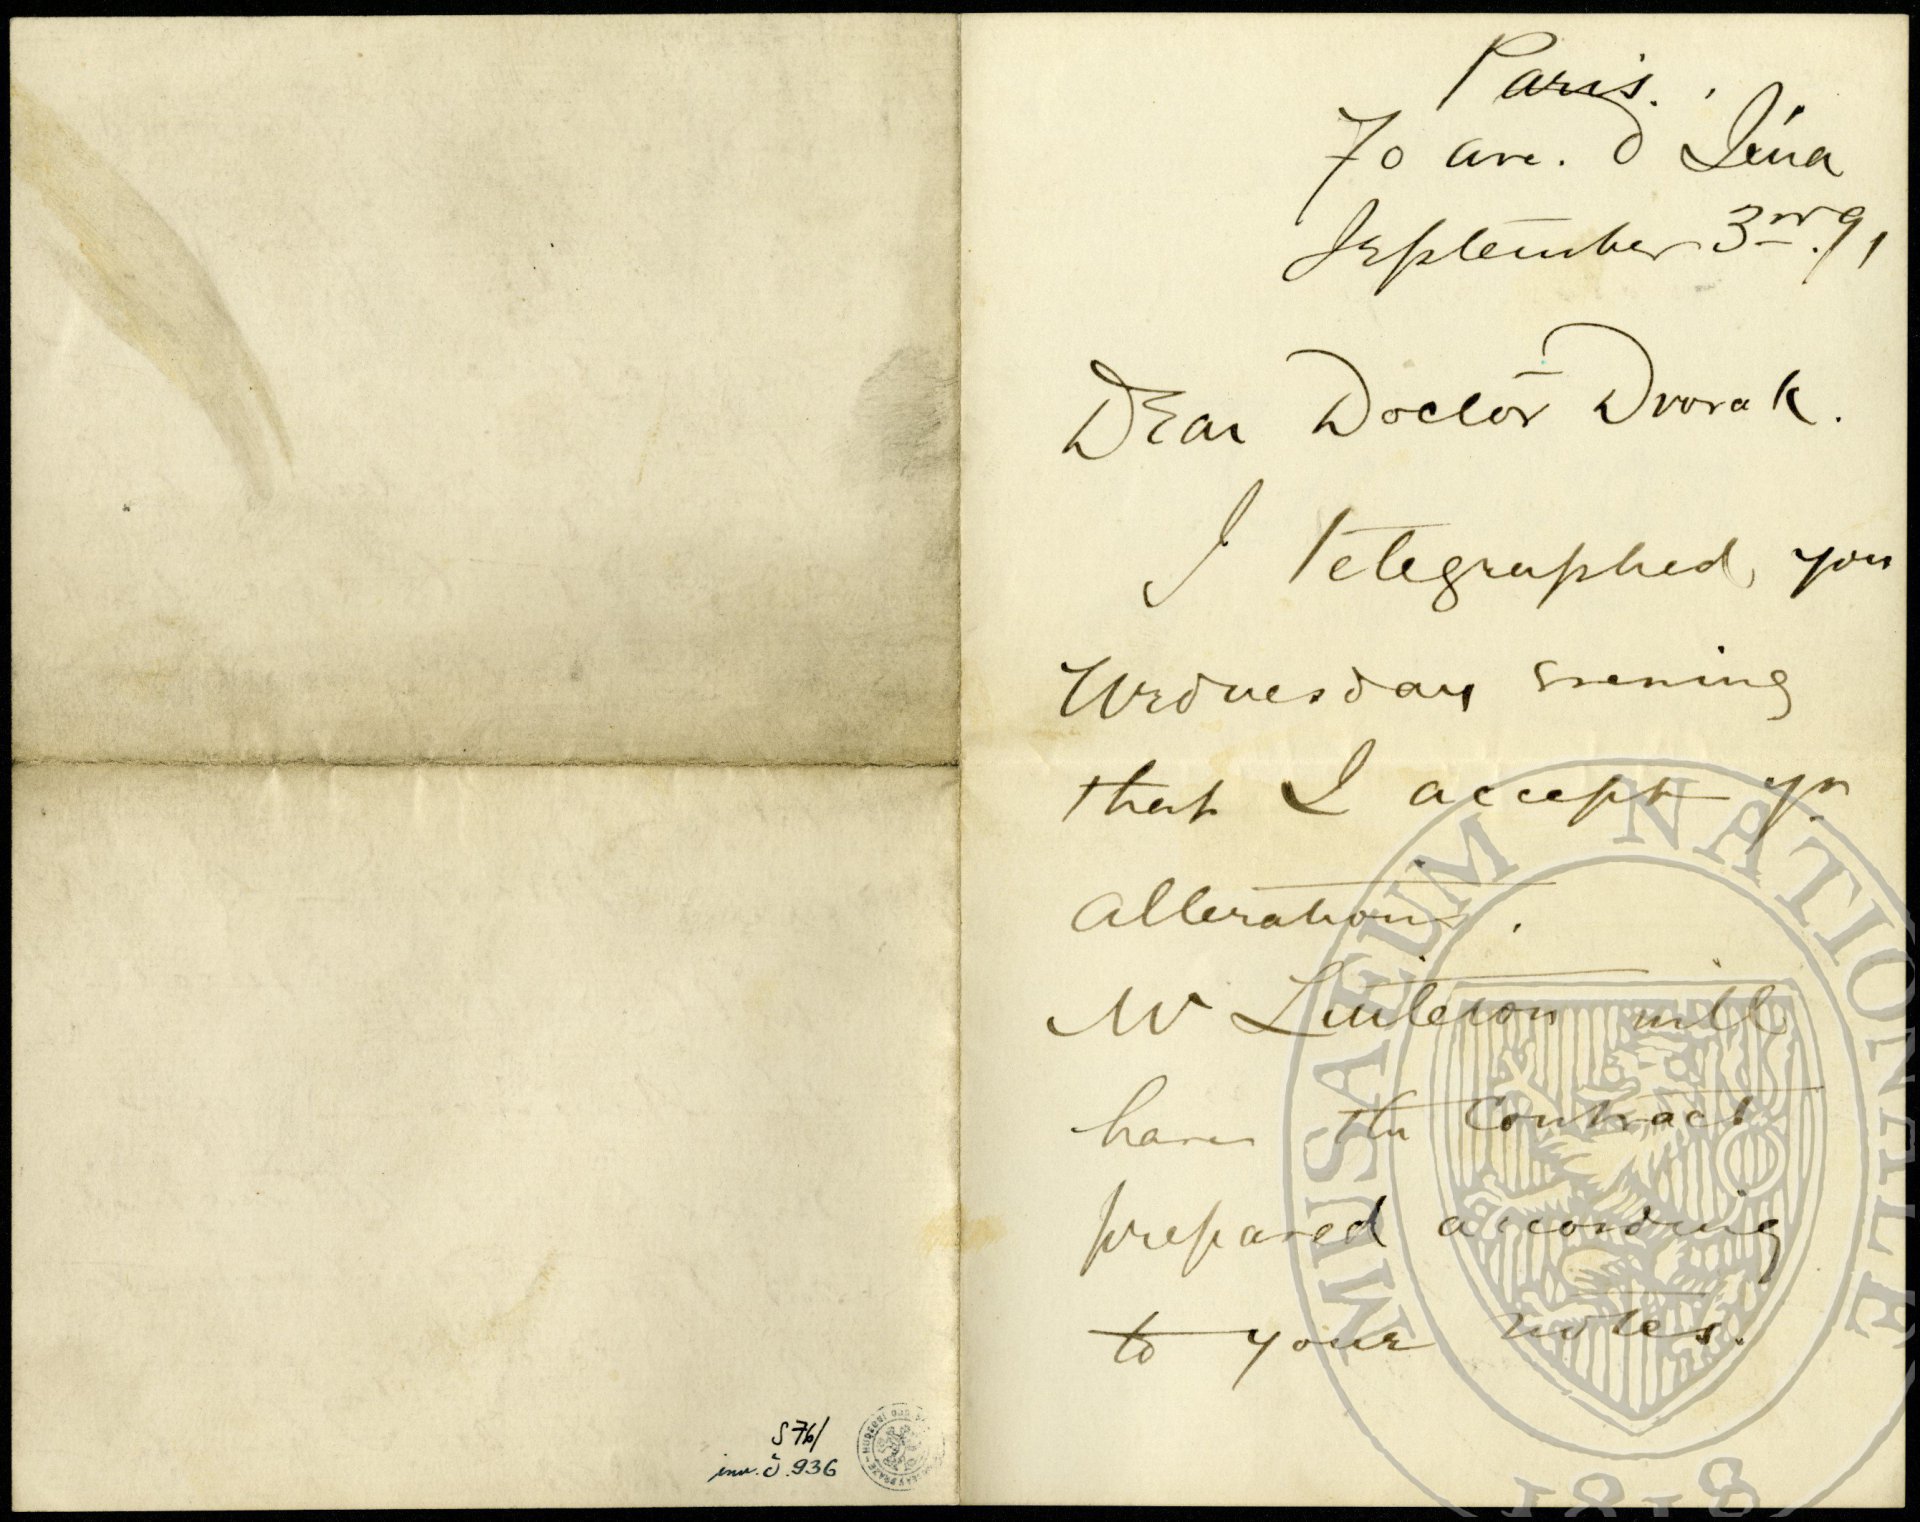 S 76/
inv. č. 936
Paris.
70 ave. d'Iéna
September 3rd. 91
Dear Doctor Dvorak.
I telegraphed you
Wednesday evening
that I accept yr.
alterations.
Mr Littleton will
have the contract
prepared according
to your notes.
MUSAEUM NATIONALE
1818